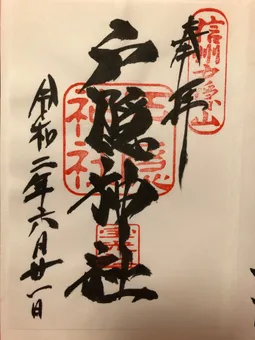 信州戸隠山
奉拝
戸隠神社
戸隠
神社
令和二年六月廿一日